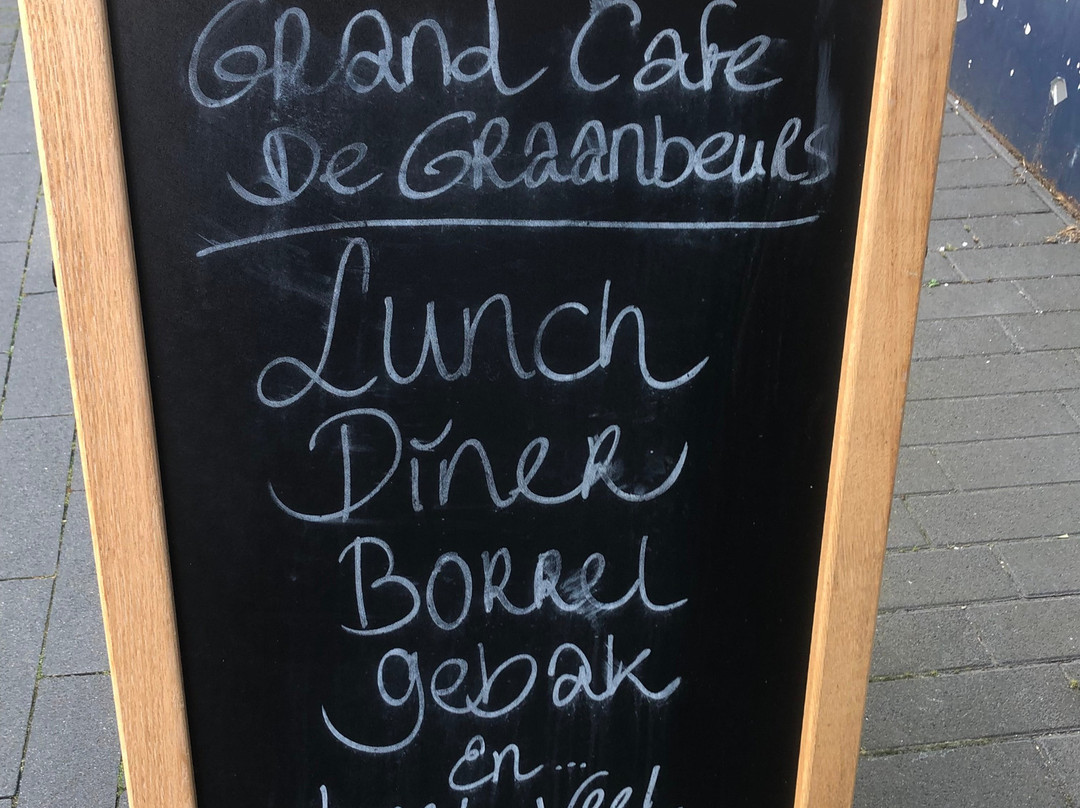 Grand Cafe
De Graanbeurs
Lunch
Dĭner
Borrel
gebak
En...
veel